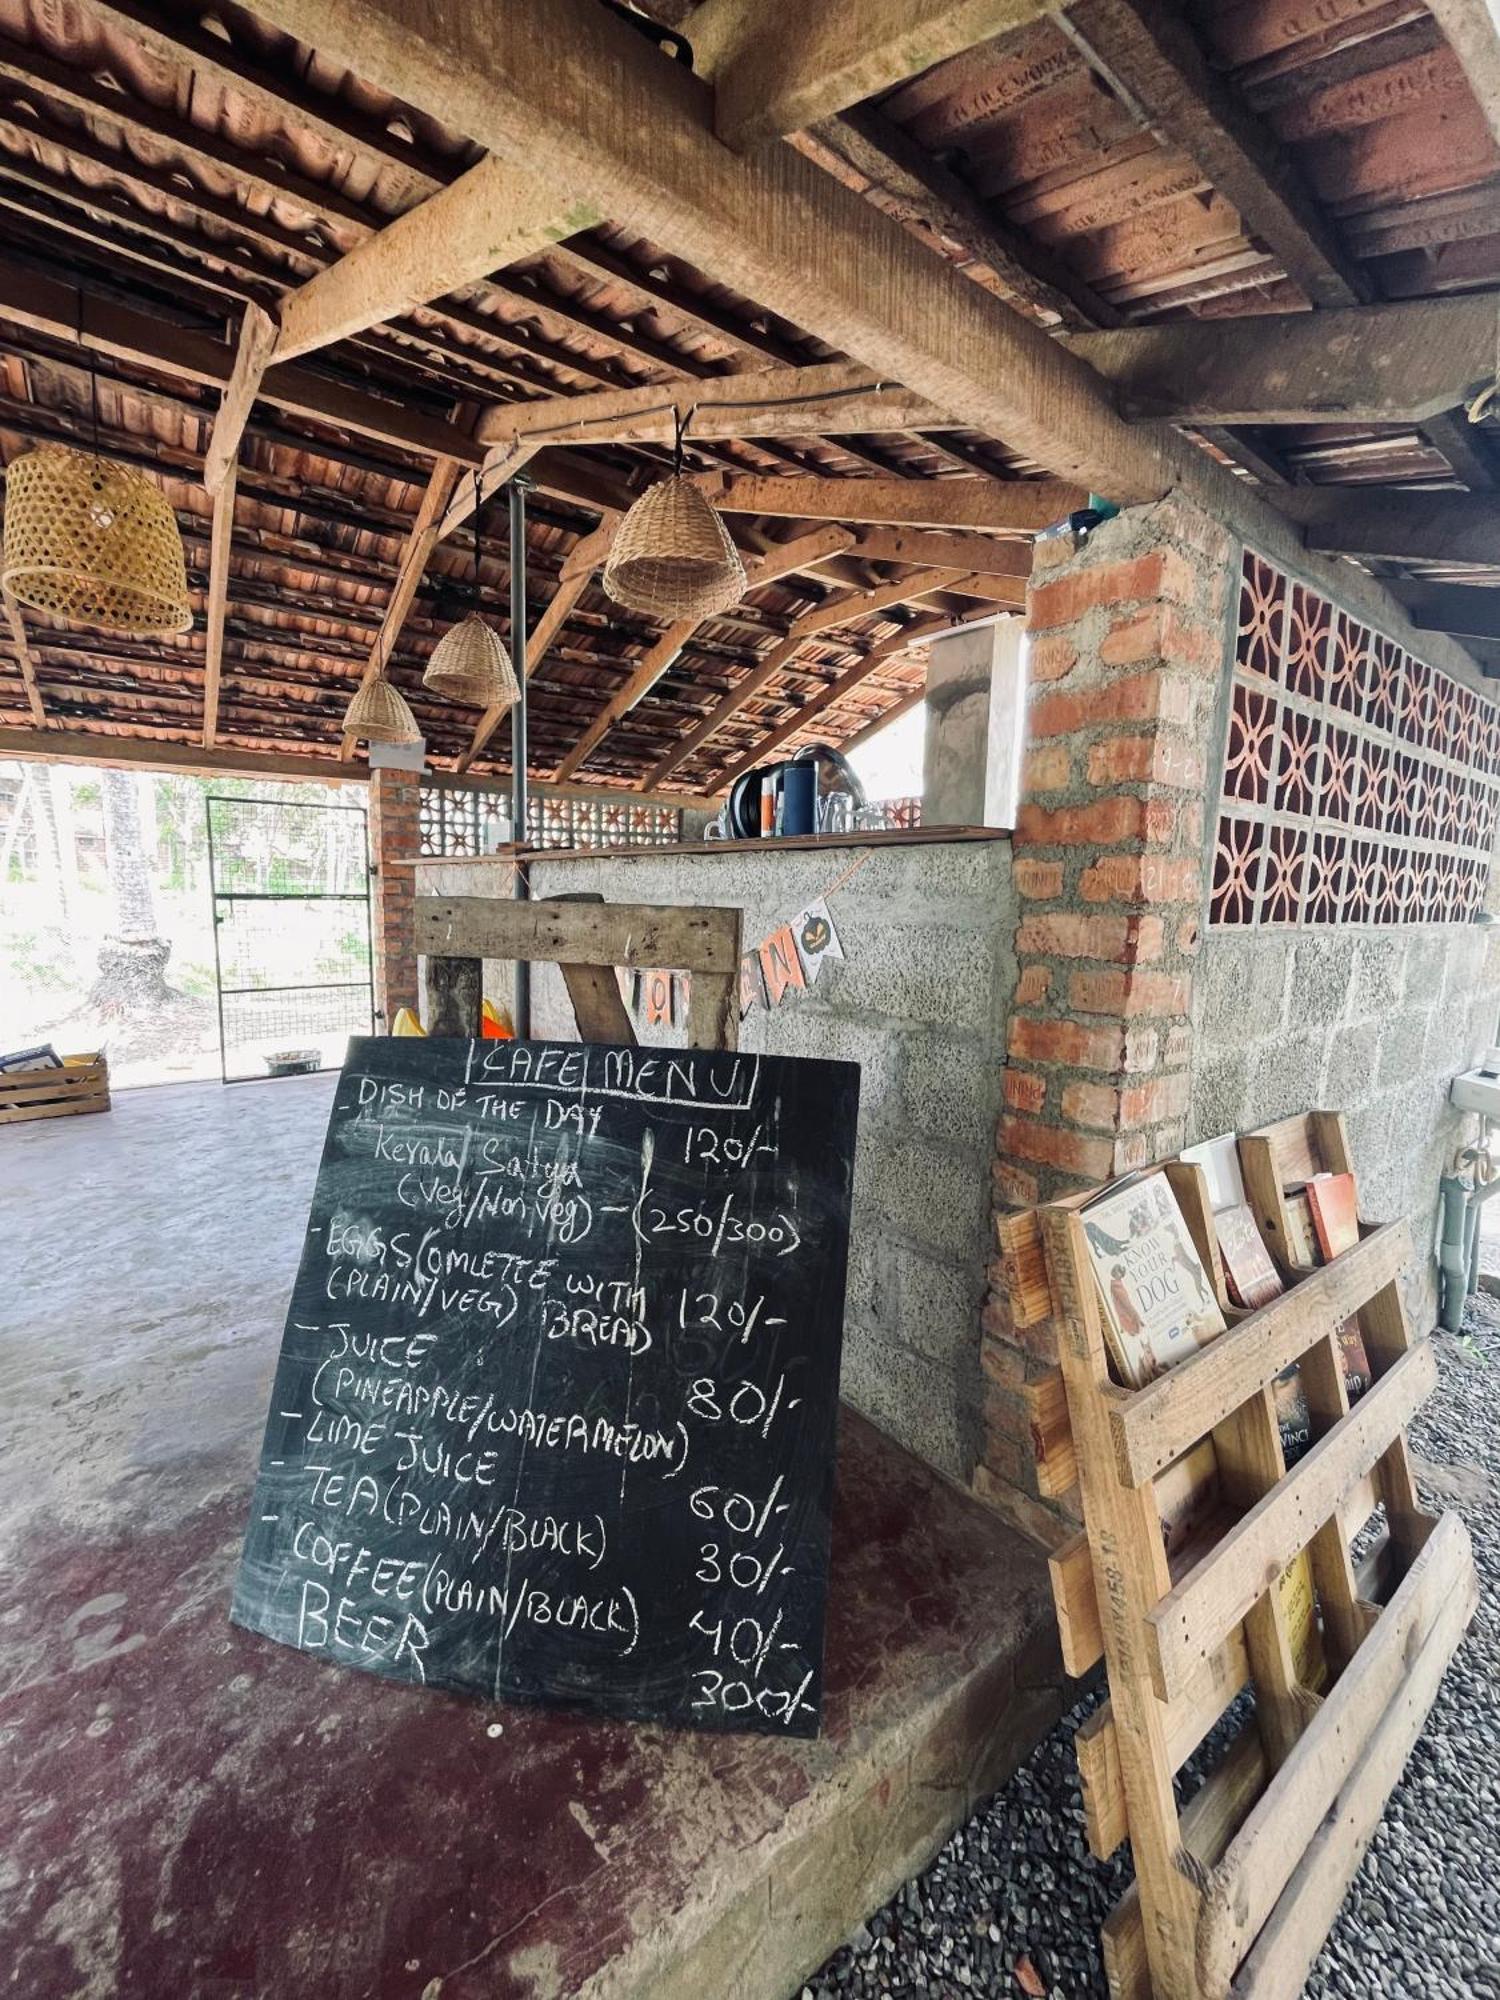 CAFE MENU
- DISH OF THE DAY 120/-
Kerala Satya
(Veg/Non Veg) - (250/300)
- EGGS (OMLETTE WITH
(PLAIN/VEG) BREAD 120/-
- JUICE
(PINEAPPLE/WATERMELON) 80/-
- LIME JUICE 60/-
- TEA (PLAIN/BLACK) 30/-
- COFFEE (PLAIN/BLACK) 40/-
BEER 300/-
KNOW
YOUR
DOG